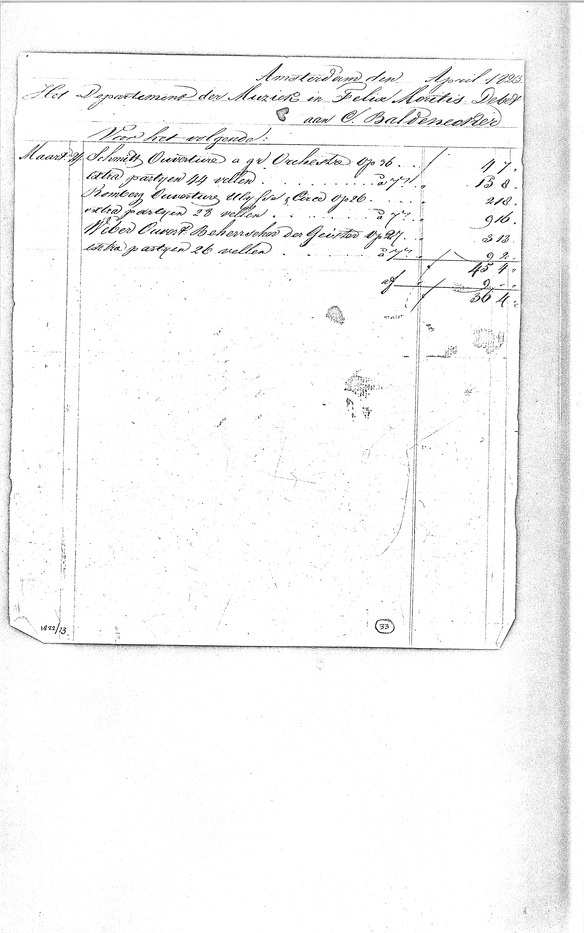 Amsterdam den April 1823
Het Departement der Muziek in Felix Meritis Debet
aan C. Baldenecker
Voor het volgende:
Maart Schmitt Ouverture a gr Orchestre Op 36 . . 4 7 .
extra partyen 44 vellen . . . . . à 7 " 13 8 .
Romberg Ouverture Ulysse & Circe Op 26 . . 2 18 .
extra partyen 28 vellen . . . . . . à 7 " 9 16 .
Weber Ouvert Beherrscher der Geister Op 27 . . 3 13 .
extra partyen 26 vellen . . . . . . à 7 " 9 2 .
45 4 .
af 9 . .
36 4 .
1822/23
33